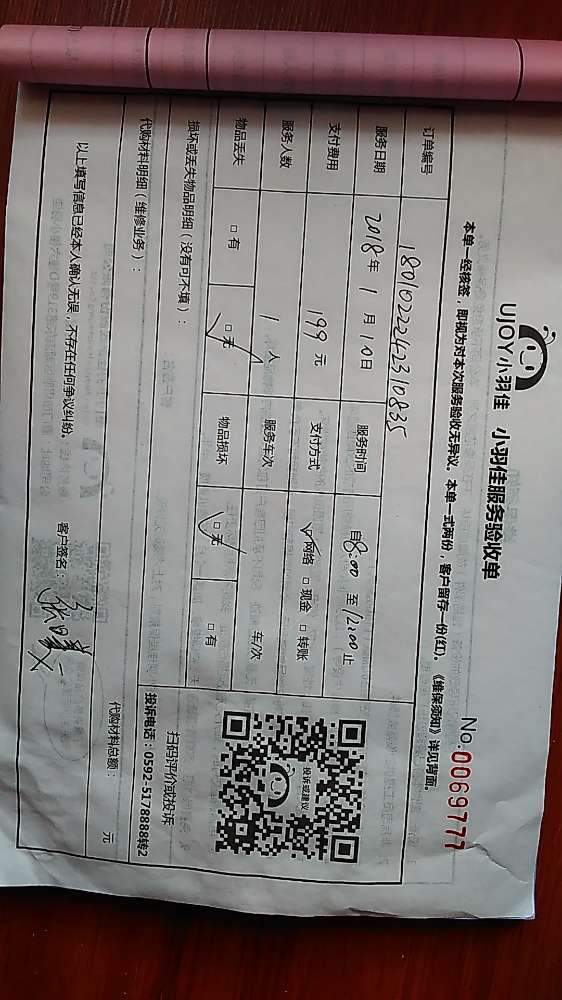 UJOY小羽佳 小羽佳服务验收单
No.0069777
本单一经核签，即视为对本次服务验收无异议。本单一式两份，客户留存一份(红)。《维保须知》详见背面。
订单编号 1801022242310835
服务日期 2018年1月10日 服务时间 自8:00至12:00止
支付费用 199元 支付方式 □网络 □现金 □转账
服务人数 1人 服务车次 车/次
物品丢失 □有 □无 物品损坏 □无 □有
投诉或建议
扫码评价或投诉
投诉电话：0592-5178888转2
损坏或丢失物品明细（没有可不填）：
代购材料明细（维修业务）：
代购材料总额： 元
以上填写信息已经本人确认无误，不存在任何争议纠纷。 客户签名：